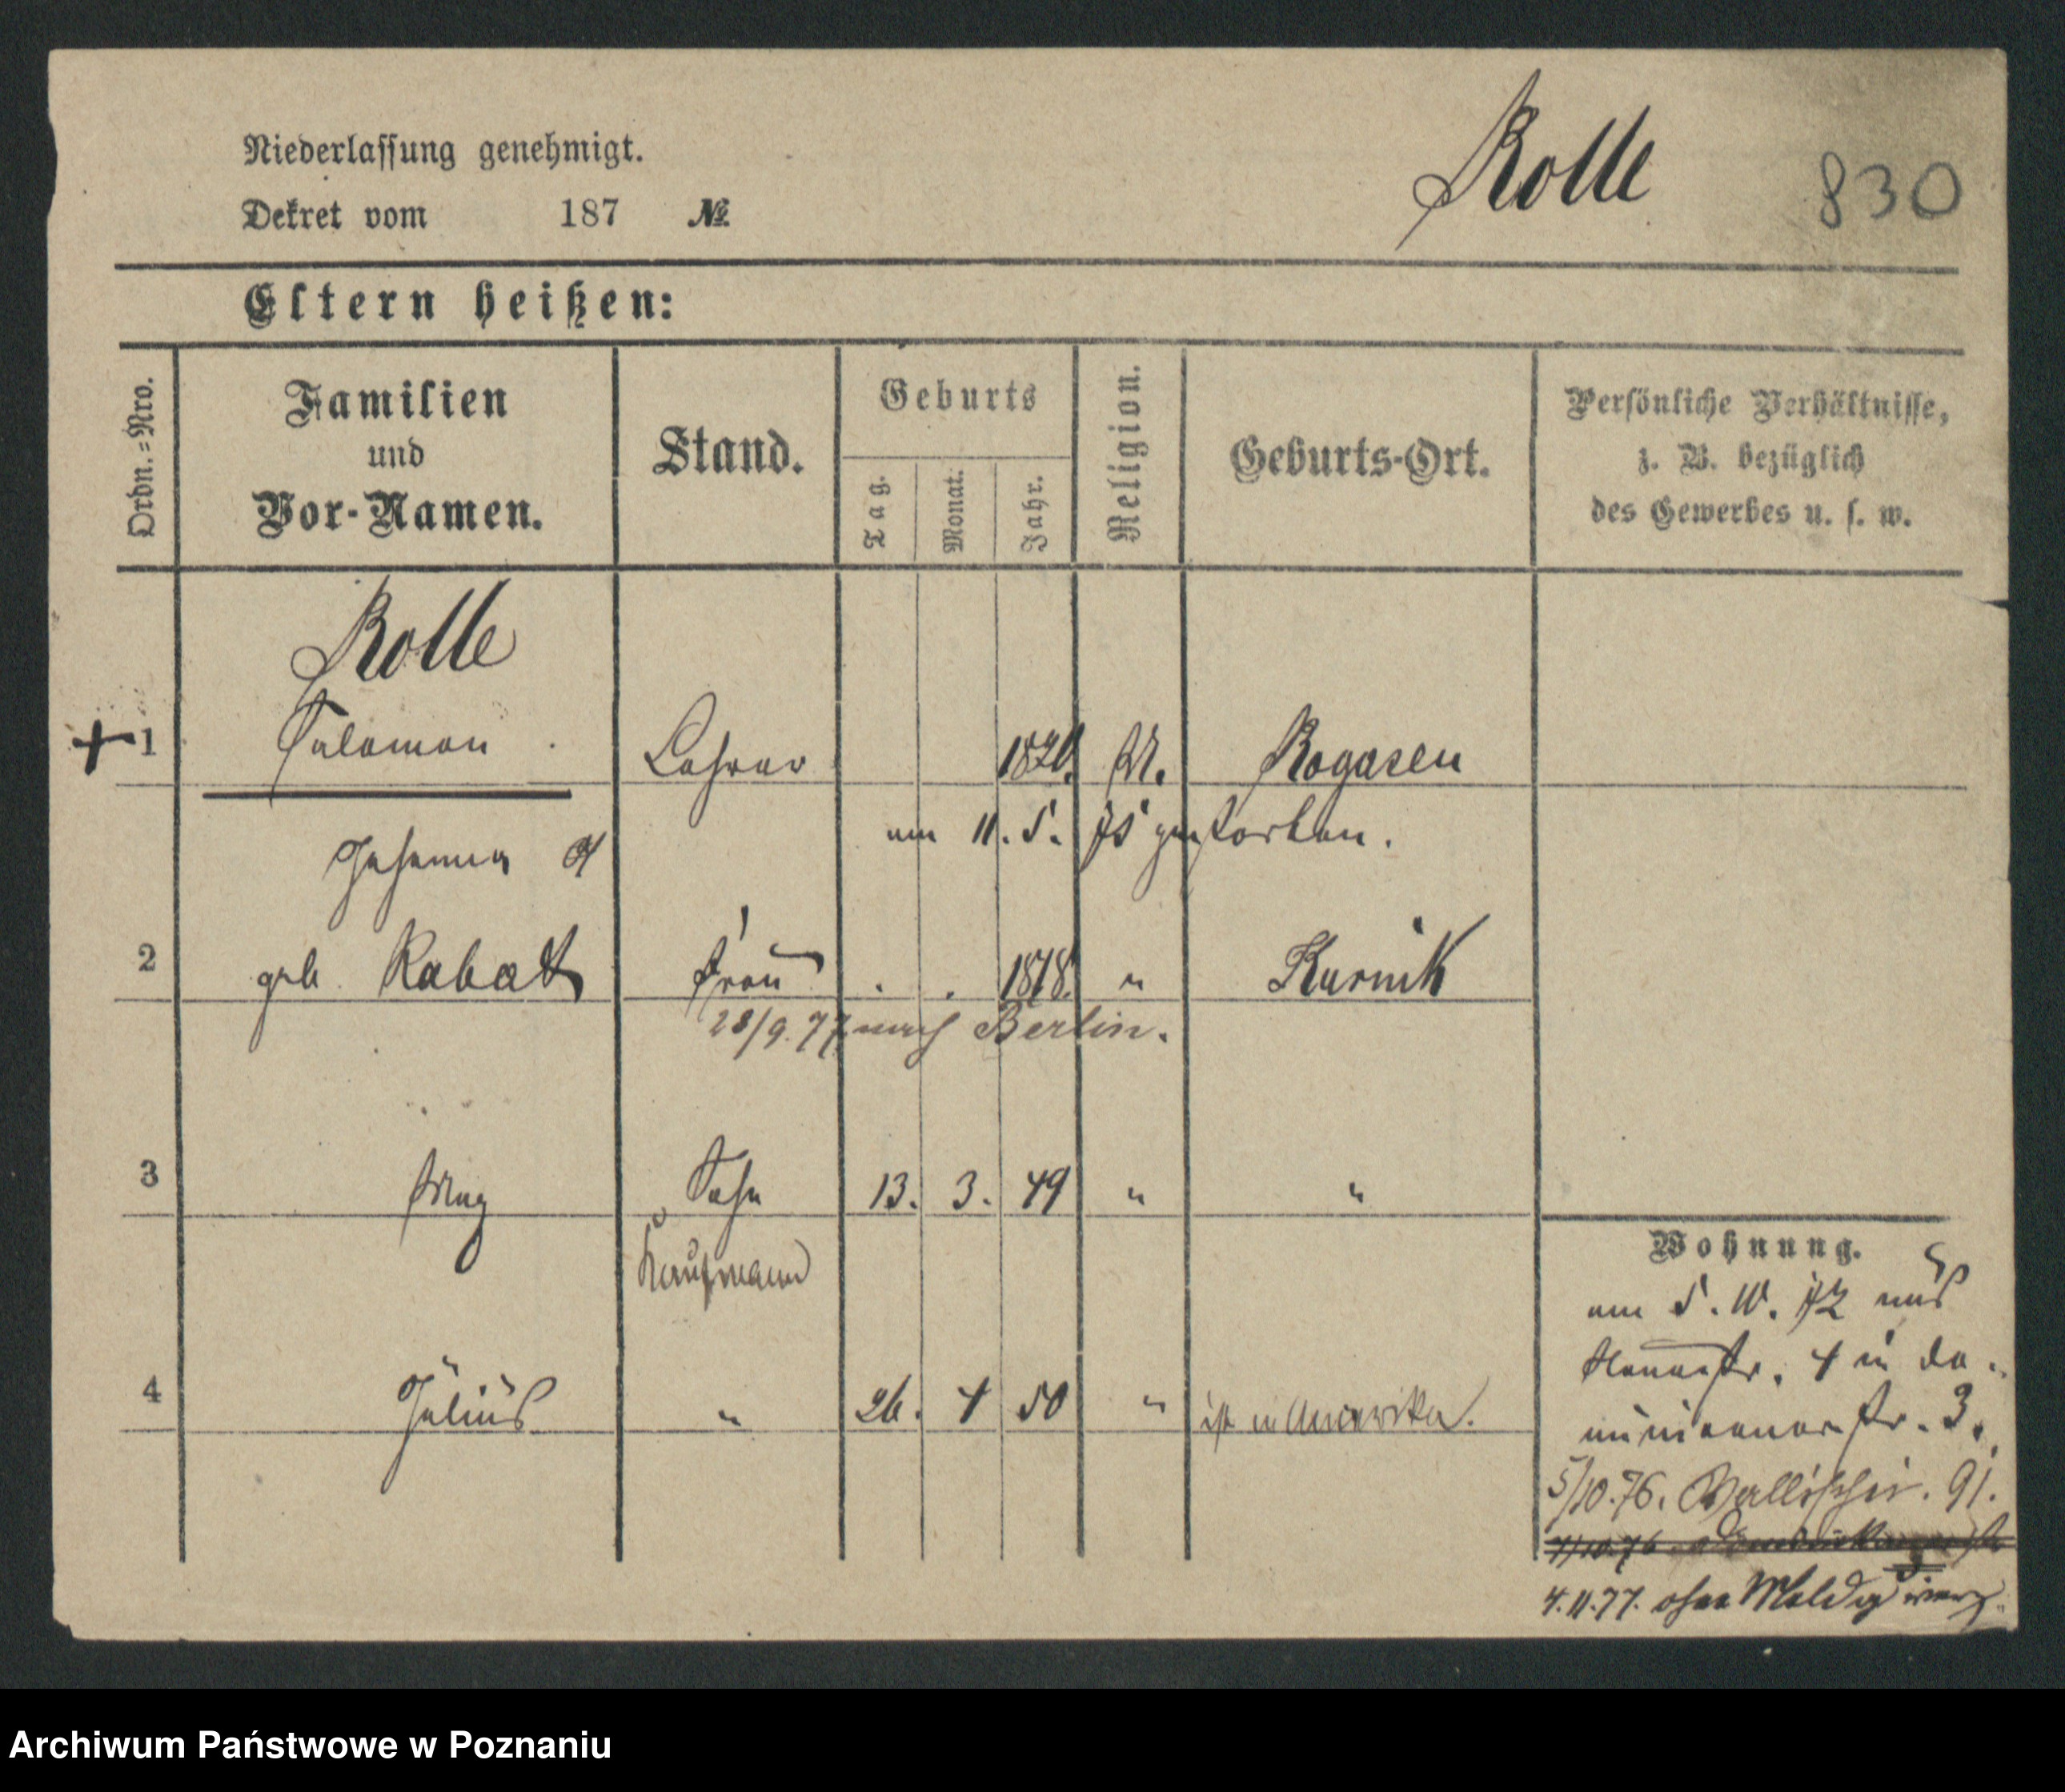 Niederlassung genehmigt.
Dekret vom 187 №
Rolle
830
Eltern heißen:
Ordn.-Nro.
Familien
und
Vor-Namen.
Stand.
Geburts
Tag.
Monat.
Jahr.
Religion.
Geburts-Ort.
Persönliche Verhältnisse,
z. B. bezüglich
des Gewerbes u. s. w.
Rolle
+ 1 Salomon Lehrer 1820. M. Rogasen
am 11. 5. 75 gestorben.
Johanna
2 geb. Rabat Frau 1818. " Kurnik
28/9. 77 nach Berlin.
3 Sohn 13. 3. 49 " "
Kaufmann
4 Julius " 26. 4 50 " ist in Amerika.
Wohnung.
am 5. 10. 72 aus
4 in Do-
minikanerstr. 3.
5/10. 76. Wallischei. 91.
4. 11. 77. ohne Meldg
Archiwum Państwowe w Poznaniu